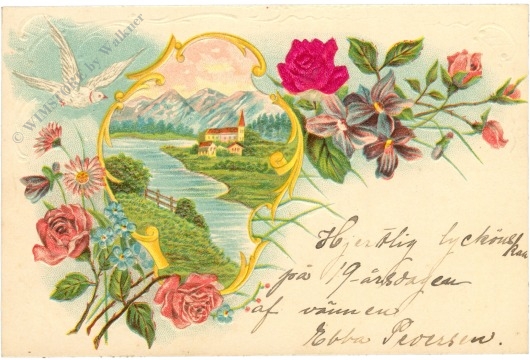 © WIMSTORE by Walkner
Hjertlig lyckönskan
på 19-årsdagen
af vännen
Ebba